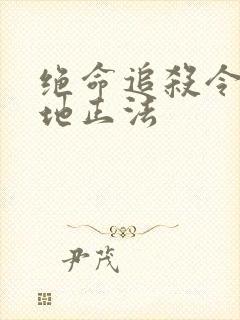 绝命追殺令
地正法
尹茂